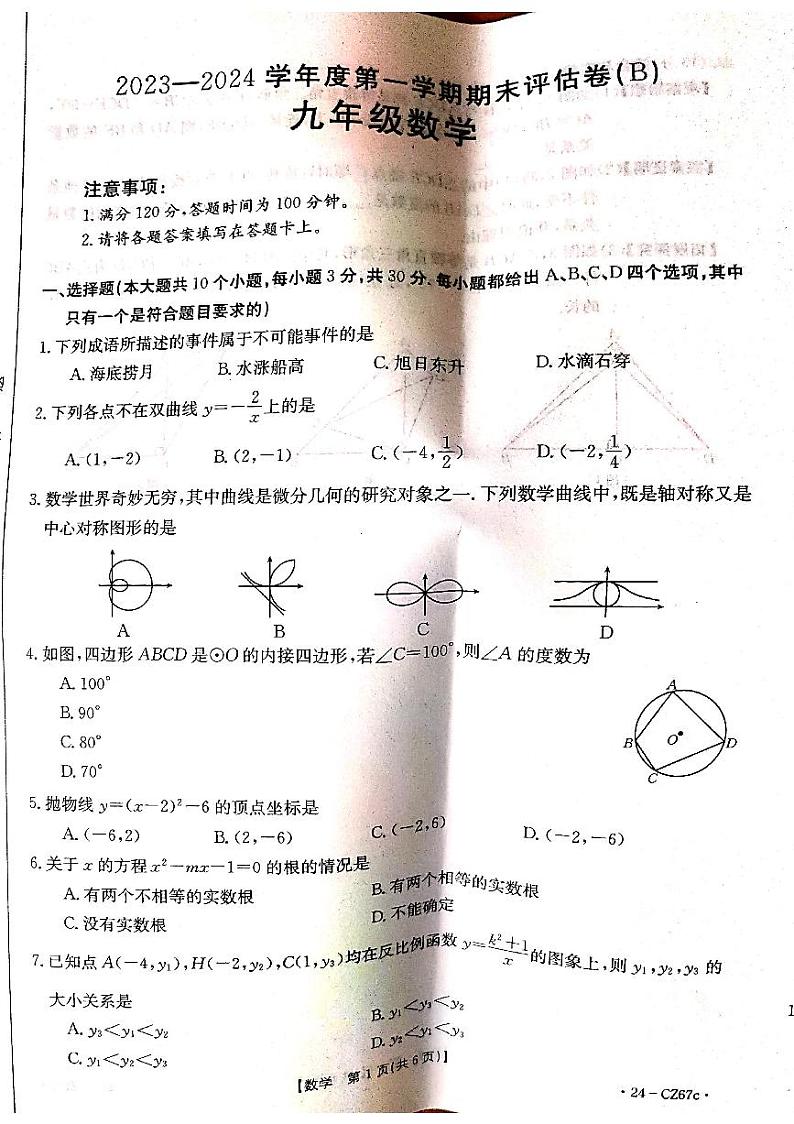 2023—2024 学年度第一学期期末评估卷(B)
九年级数学
注意事项:
1.满分 120 分,答题时间为 100 分钟。
2.请将各题答案填写在答题卡上。
一、选择题(本大题共 10 个小题,每小题 3 分,共 30 分.每小题都给出 A、B、C、D 四个选项,其中
只有一个是符合题目要求的)
1.下列成语所描述的事件属于不可能事件的是
A.海底捞月 B.水涨船高 C.旭日东升 D.水滴石穿
2.下列各点不在双曲线 y=-2/x 上的是
A.(1,-2) B.(2,-1) C.(-4,1/2) D.(-2,1/4)
3.数学世界奇妙无穷,其中曲线是微分几何的研究对象之一.下列数学曲线中,既是轴对称又是
中心对称图形的是
A B C D
4.如图,四边形 ABCD 是⊙O 的内接四边形,若∠C=100°,则∠A 的度数为
A.100°
B.90°
C.80°
D.70°
A
B
O
D
C
5.抛物线 y=(x-2)²-6 的顶点坐标是
A.(-6,2) B.(2,-6) C.(-2,6) D.(-2,-6)
6.关于 x 的方程 x²-mx-1=0 的根的情况是
A.有两个不相等的实数根 B.有两个相等的实数根
C.没有实数根 D.不能确定
7.已知点 A(-4,y₁),H(-2,y₂),C(1,y₃)均在反比例函数 y=(k²+1)/x 的图象上,则 y₁,y₂,y₃ 的
大小关系是
A.y₃<y₁<y₂ B.y₁<y₃<y₂
C.y₁<y₂<y₃ D.y₂<y₁<y₃
【数学 第 1 页(共 6 页)】
·24-CZ67c·